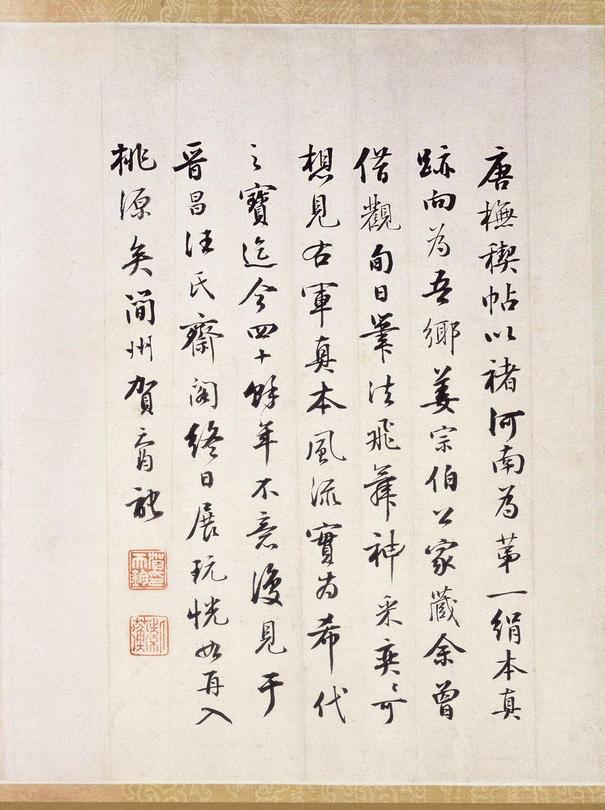 唐橅禊帖以褚河南為苐一絹本真
跡向為吾鄉姜宗伯公家藏余曾
借觀旬日筆法飛舞神采奕〻可
想見右軍真本風流實為希代
之寶迄今四十餘年不意復見于
晉昌汪氏齋閣終日展玩恍如再入
桃源矣州賀